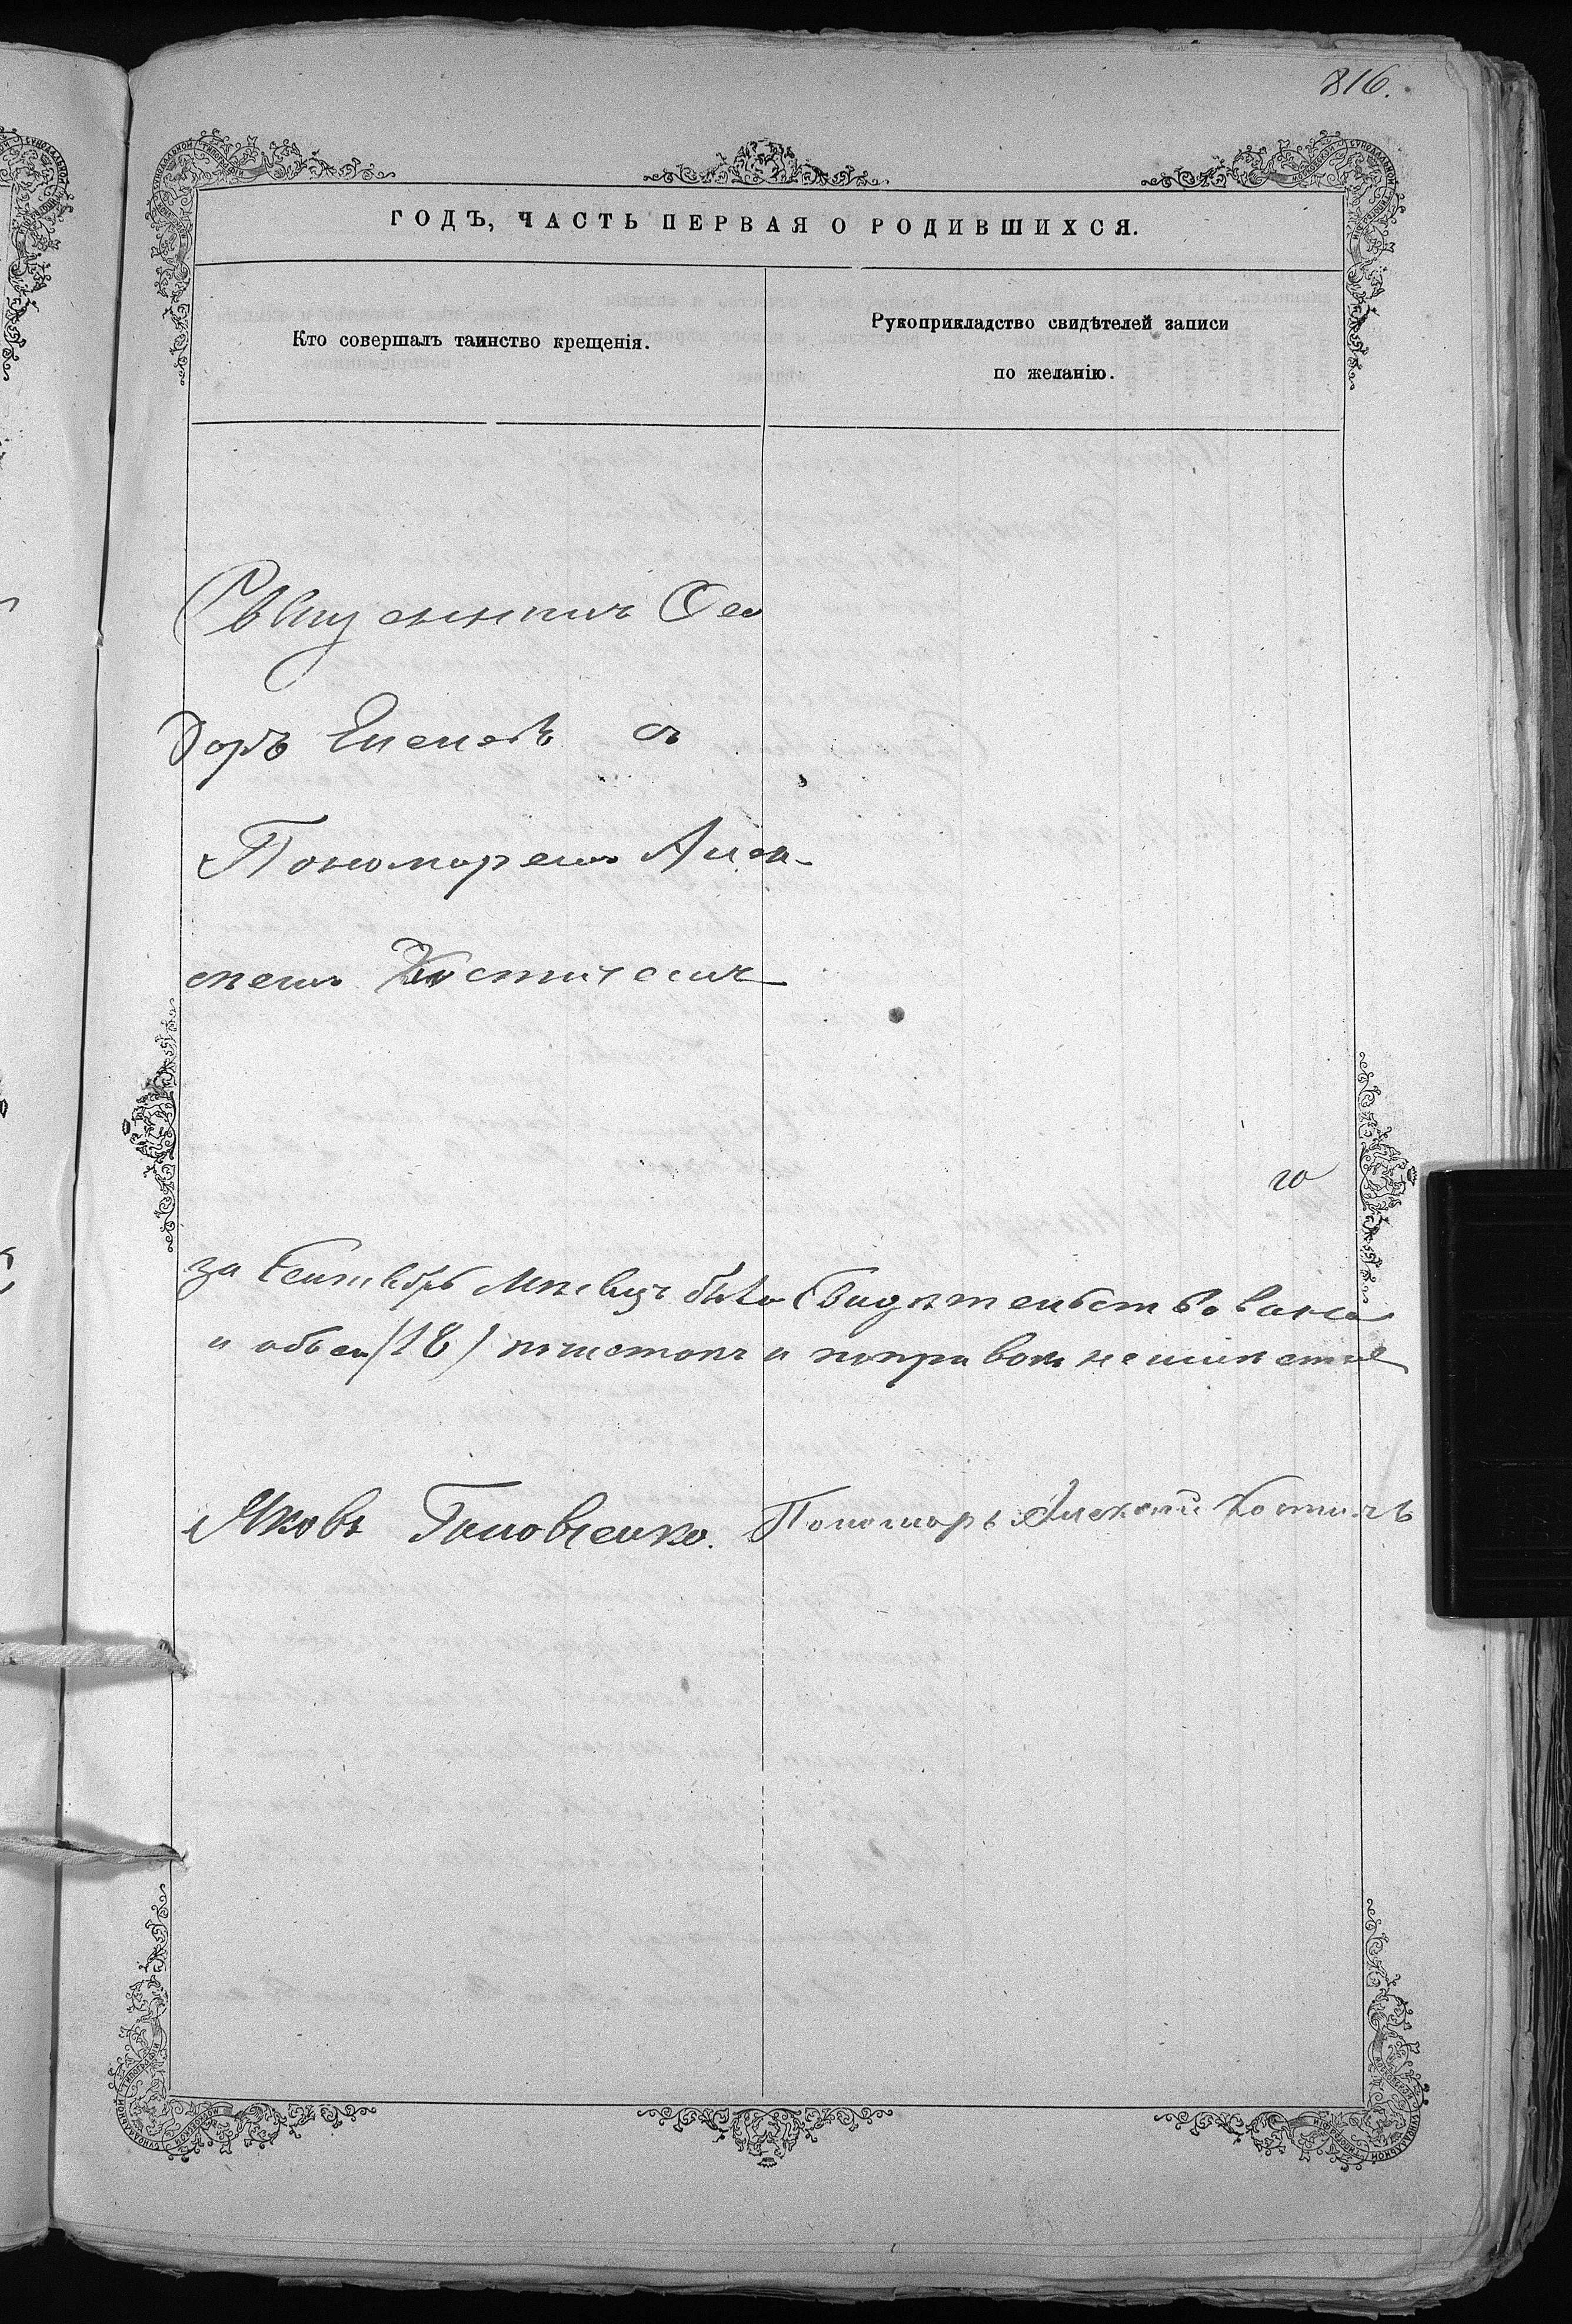 816.
ГОДЪ, ЧАСТЬ ПЕРВАЯ О РОДИВШИХСЯ.
Кто совершалъ таинство крещенія.
Рукоприкладство свидѣтелей записи
по желанію.
Священникъ Ѳео
доръ съ
Пономаремъ Алек-
сѣемъ Костичемъ
го
за Сентябрь Мѣсяцъ было Свидѣтельствована
и обоего (18) по листамъ и
Яковъ Головченко. Пономарь Алексѣй Костичъ